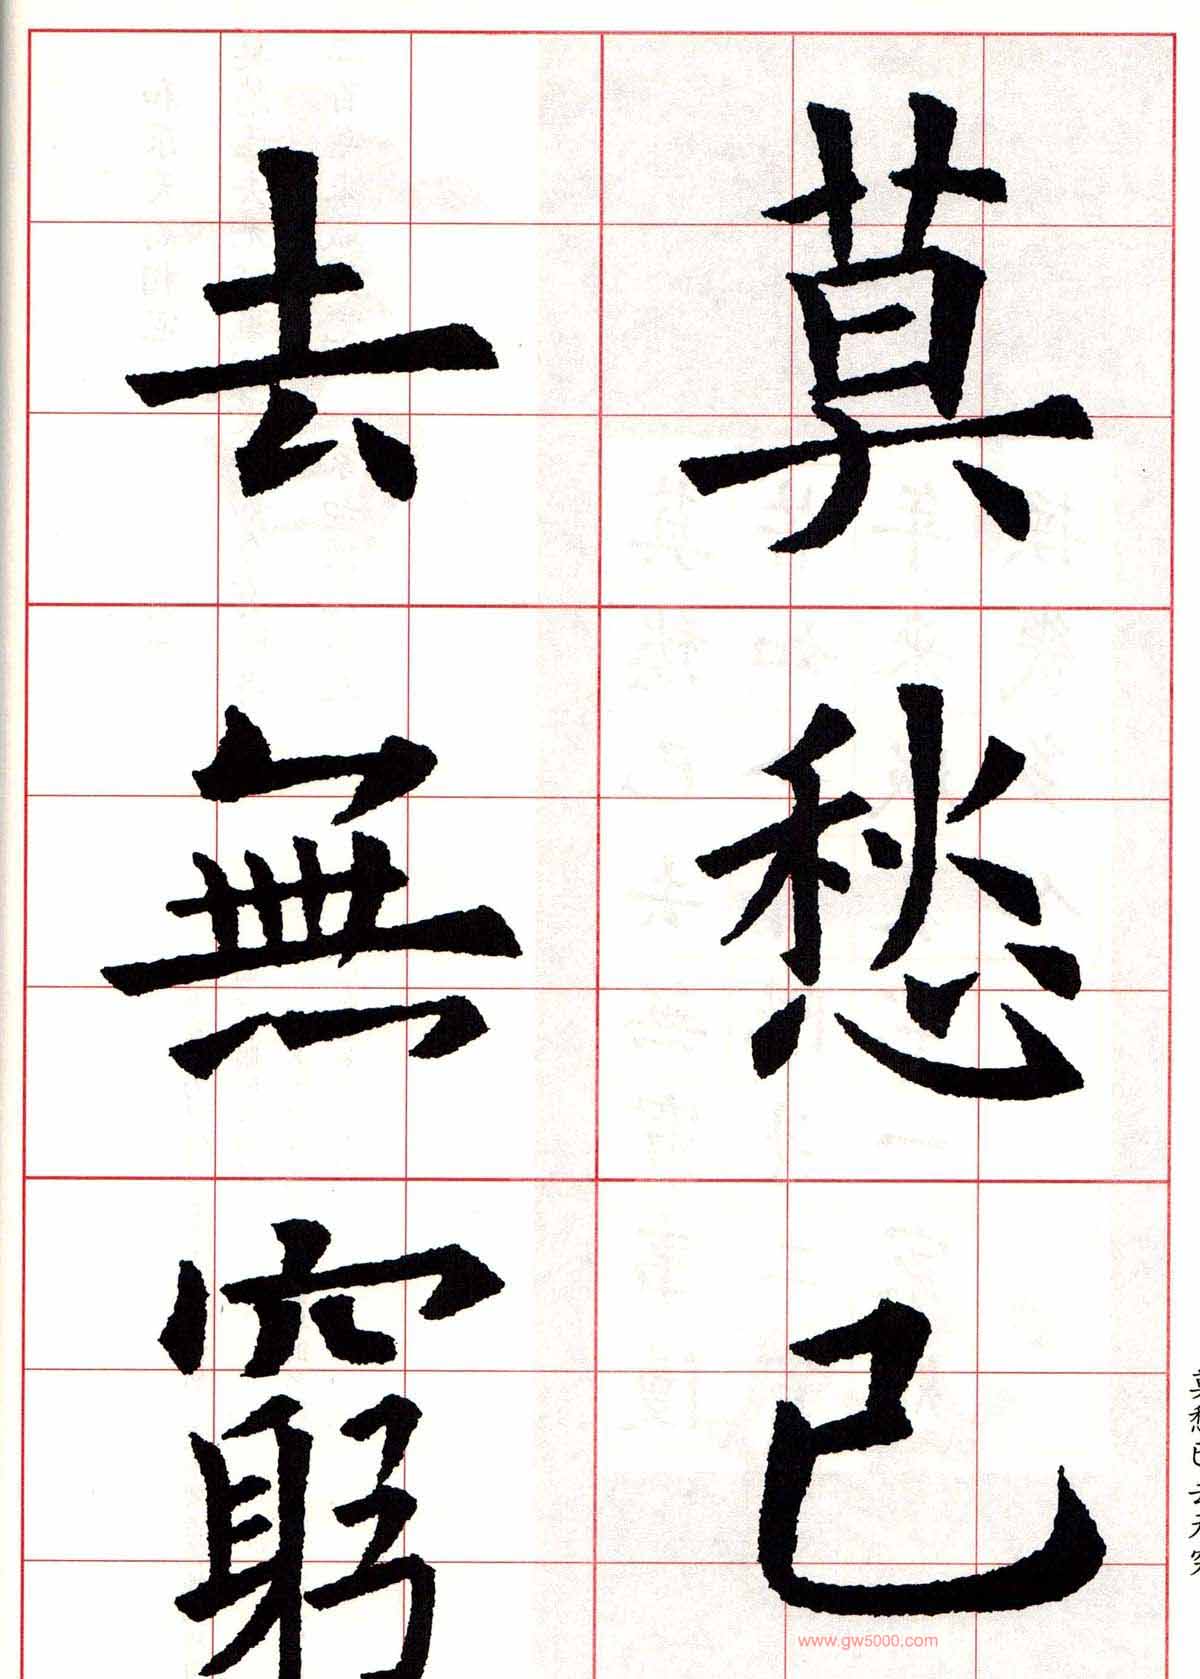 莫愁已
去無窮
莫愁已去无穷
www.gw5000.com